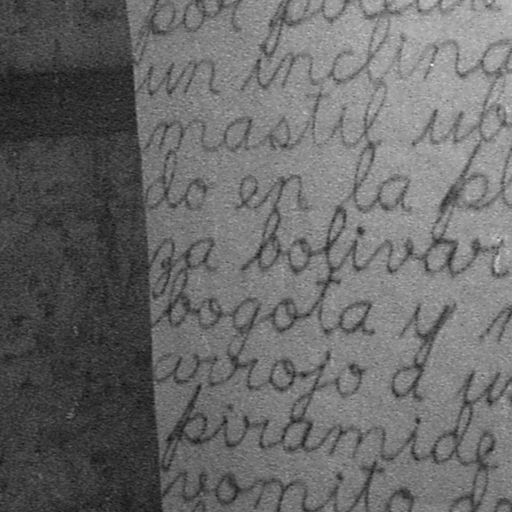 por
un inclina
mastil ub
do en la pl
za bolivar
bogota y
arrojo a u
piramide
vomito de